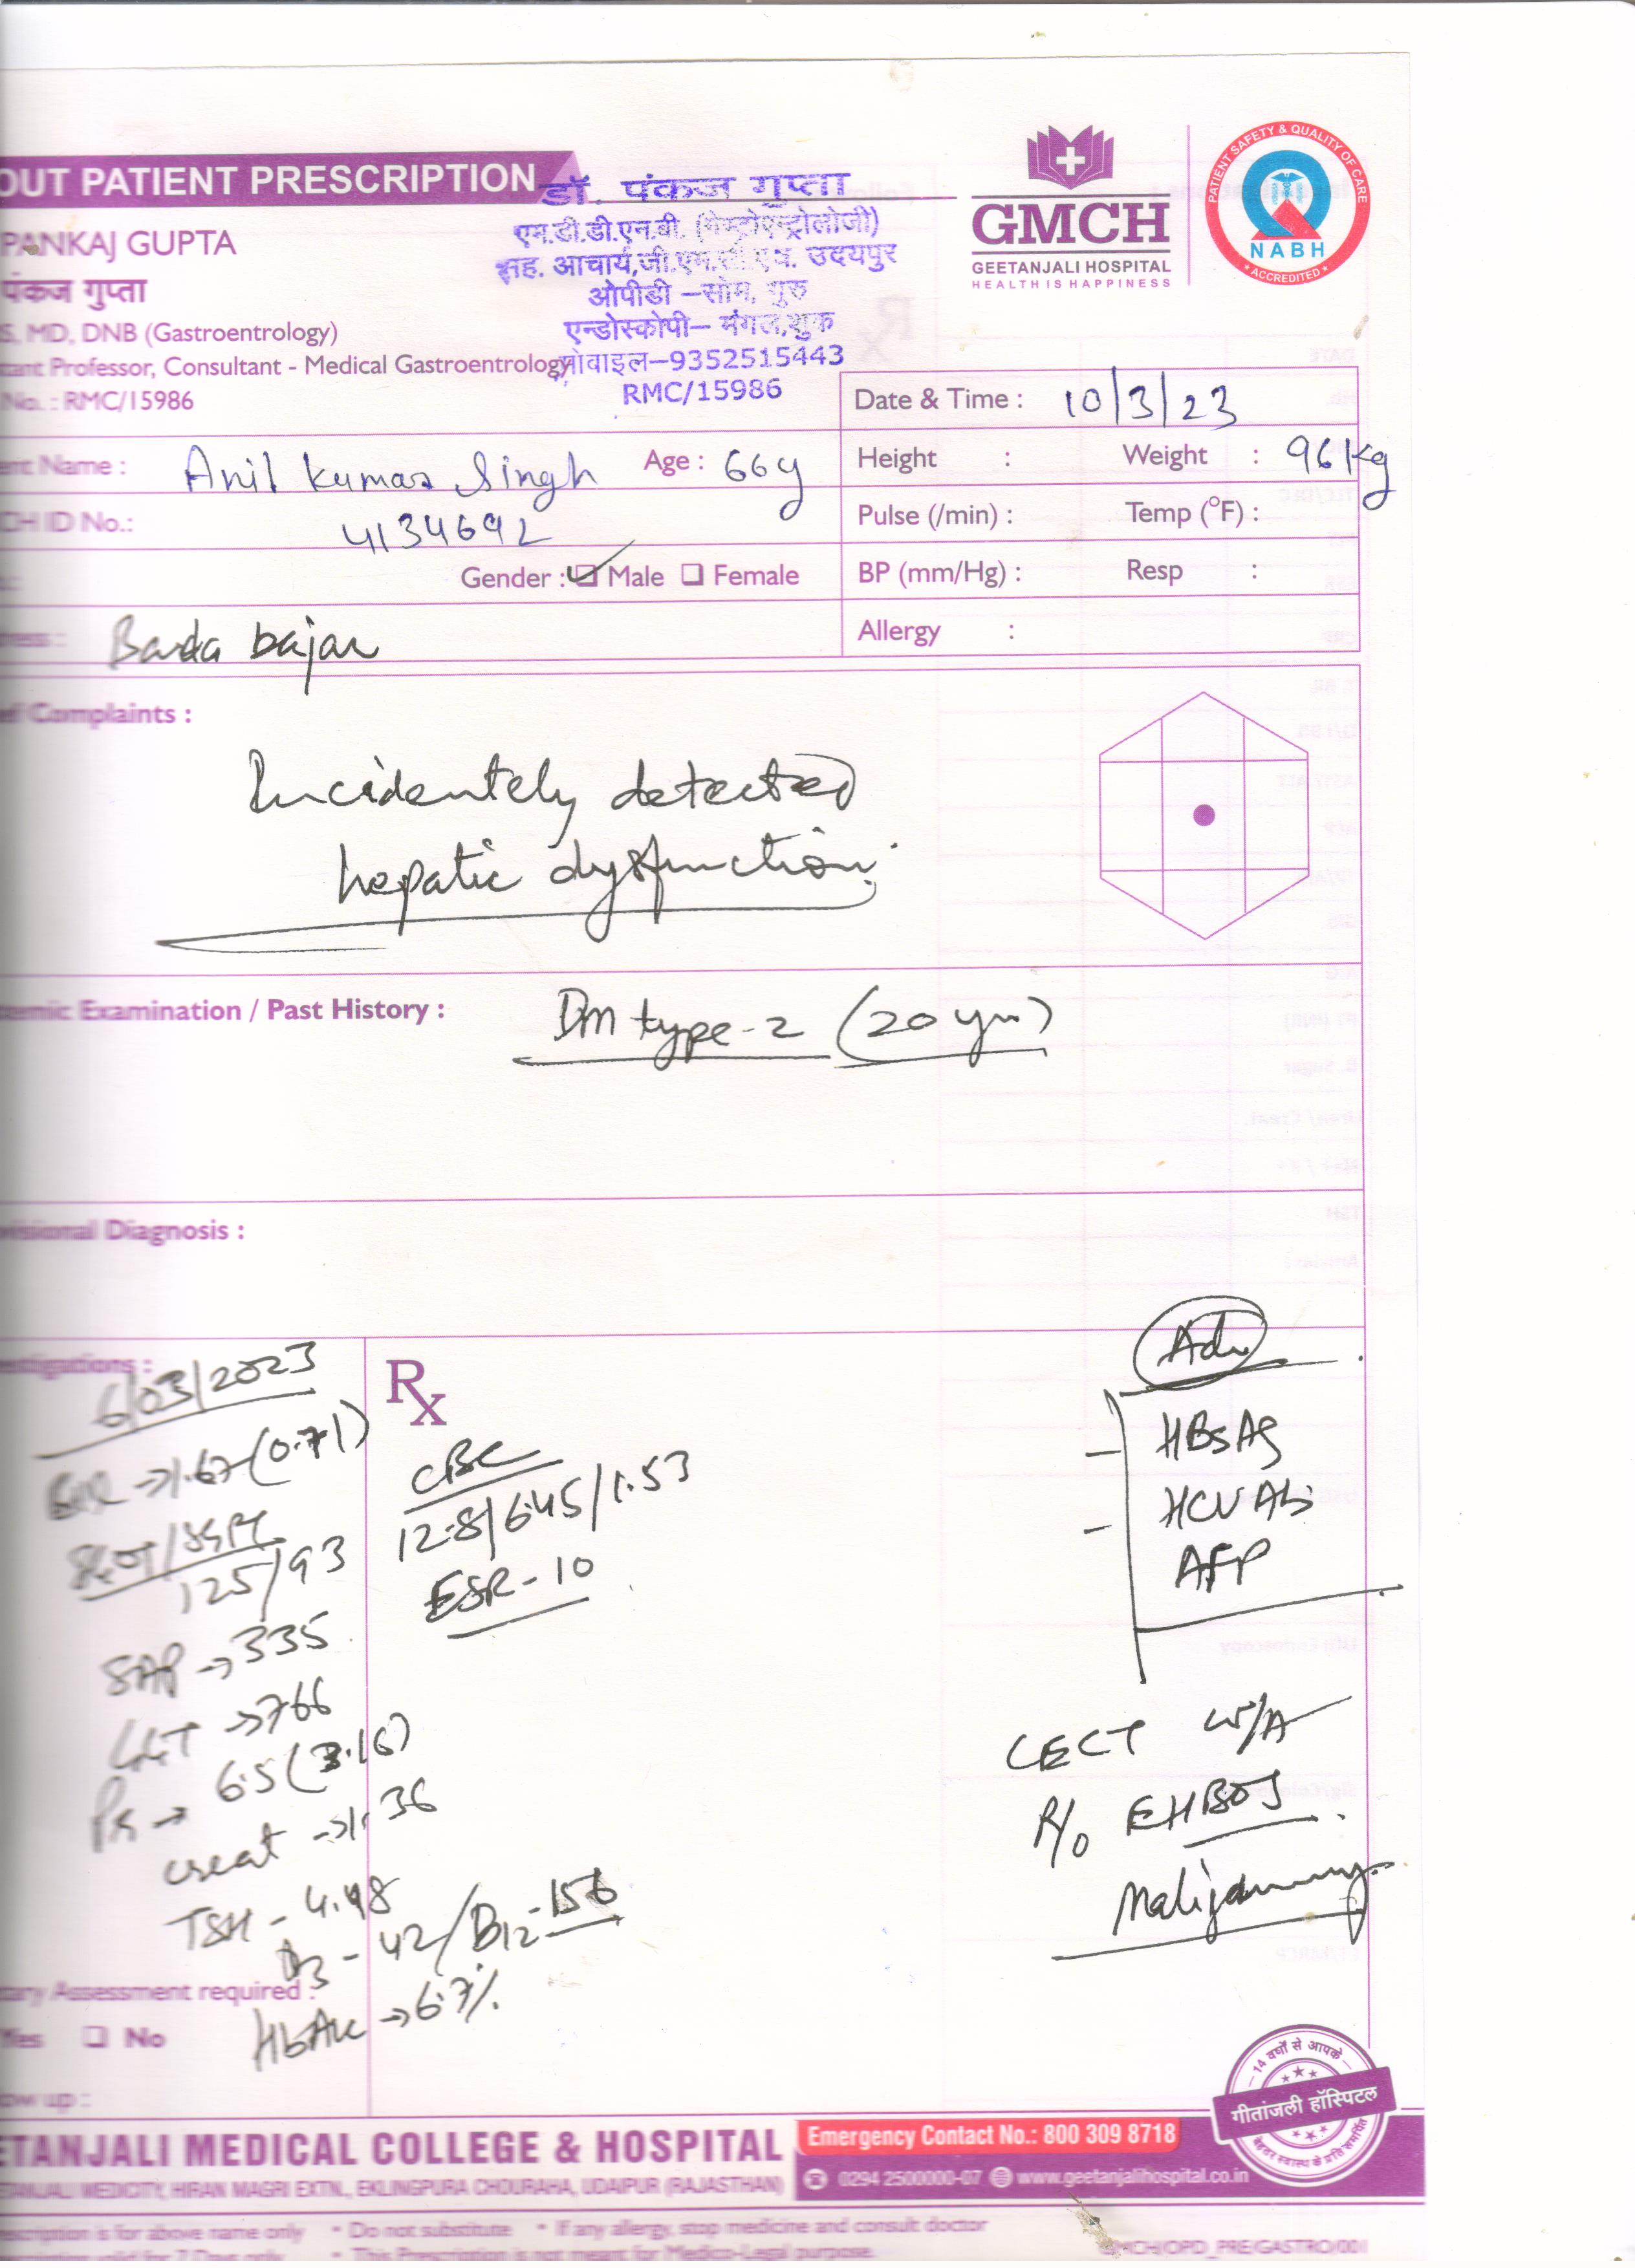 OUT PATIENT PRESCRIPTION
डॉ. पंकज गुप्ता
एम.डी.डी.एन.बी. (गेस्ट्रोएन्ट्रोलोजी)
सह. आचार्य,जी.एम.सी.एच. उदयपुर
ओपीडी –सोम, गुरु
एन्डोस्कोपी– मंगल,शुक्र
मोबाइल–9352515443
RMC/15986
GMCH
GEETANJALI HOSPITAL
HEALTH IS HAPPINESS
PATIENT SAFETY & QUALITY OF CARE
NABH
ACCREDITED
PANKAJ GUPTA
पंकज गुप्ता
S, MD, DNB (Gastroentrology)
tant Professor, Consultant - Medical Gastroentrology
No. : RMC/15986
Date & Time : 10/3/23
ent Name : Anil Kumar Singh Age : 66y
Height : Weight : 96 Kg
CH ID No.: 4134692
Pulse (/min) : Temp (°F) :
Gender : Male Female
BP (mm/Hg) : Resp :
ress : Barda bajar
Allergy :
ef Complaints :
Incidentely detected
hepatic dysfunction.
temic Examination / Past History : DM type-2 (20 yrs)
visional Diagnosis :
estigations :
6/03/2023
→1.67 (0.71)
SGOT/SGPT
125/93
SAP → 335
GGT → 766
→ 6.5 (3.16)
creat → 1.36
TSH - 4.48
D3 - 42/B12 - 156
HbA1c → 6.7%
Rx
CBC
12.8/6.45/1.53
ESR - 10
Adv
HBsAg
HCV Ab
AFP
CECT W/A
R/o EHBOJ
Malignancy
tary Assessment required :
Yes No
ow up :
14 वर्षों से आपके
गीतांजली हॉस्पिटल
बेहतर स्वास्थ के प्रति समर्पित
ETANJALI MEDICAL COLLEGE & HOSPITAL
Emergency Contact No.: 800 309 8718
ETANJALI MEDICITY, HIRAN MAGRI EXTN., EKLINGPURA CHOURAHA, UDAIPUR (RAJASTHAN)
0294 2500000-07 www.geetanjalihospital.co.in
escription is for above name only • Do not substitute • If any allergy, stop medicine and consult doctor
scription valid for 7 Days only • This Prescription is not meant for Medico-Legal purpose
GMCH/OPD_PRE/GASTRO/001